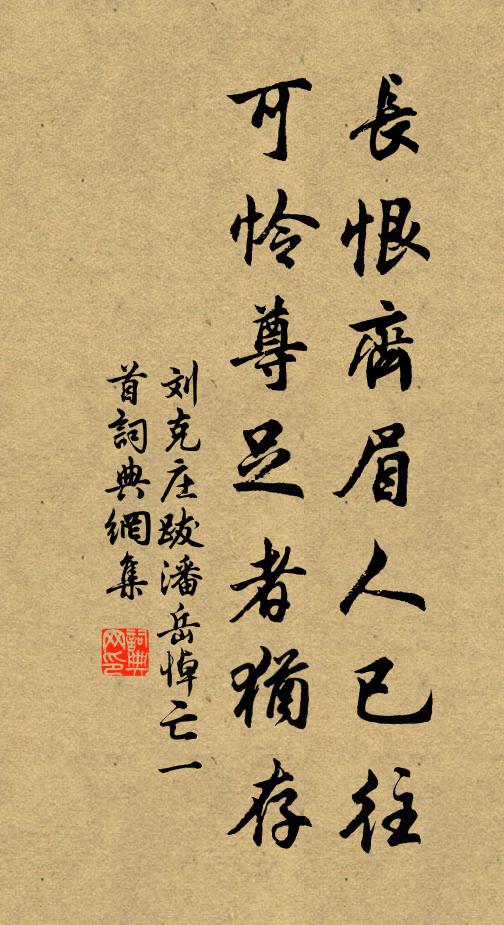 長恨齊眉人已往
可憐尊足者猶存
刘克庄跋潘岳悼亡一
首詞典網集
詞典
网印